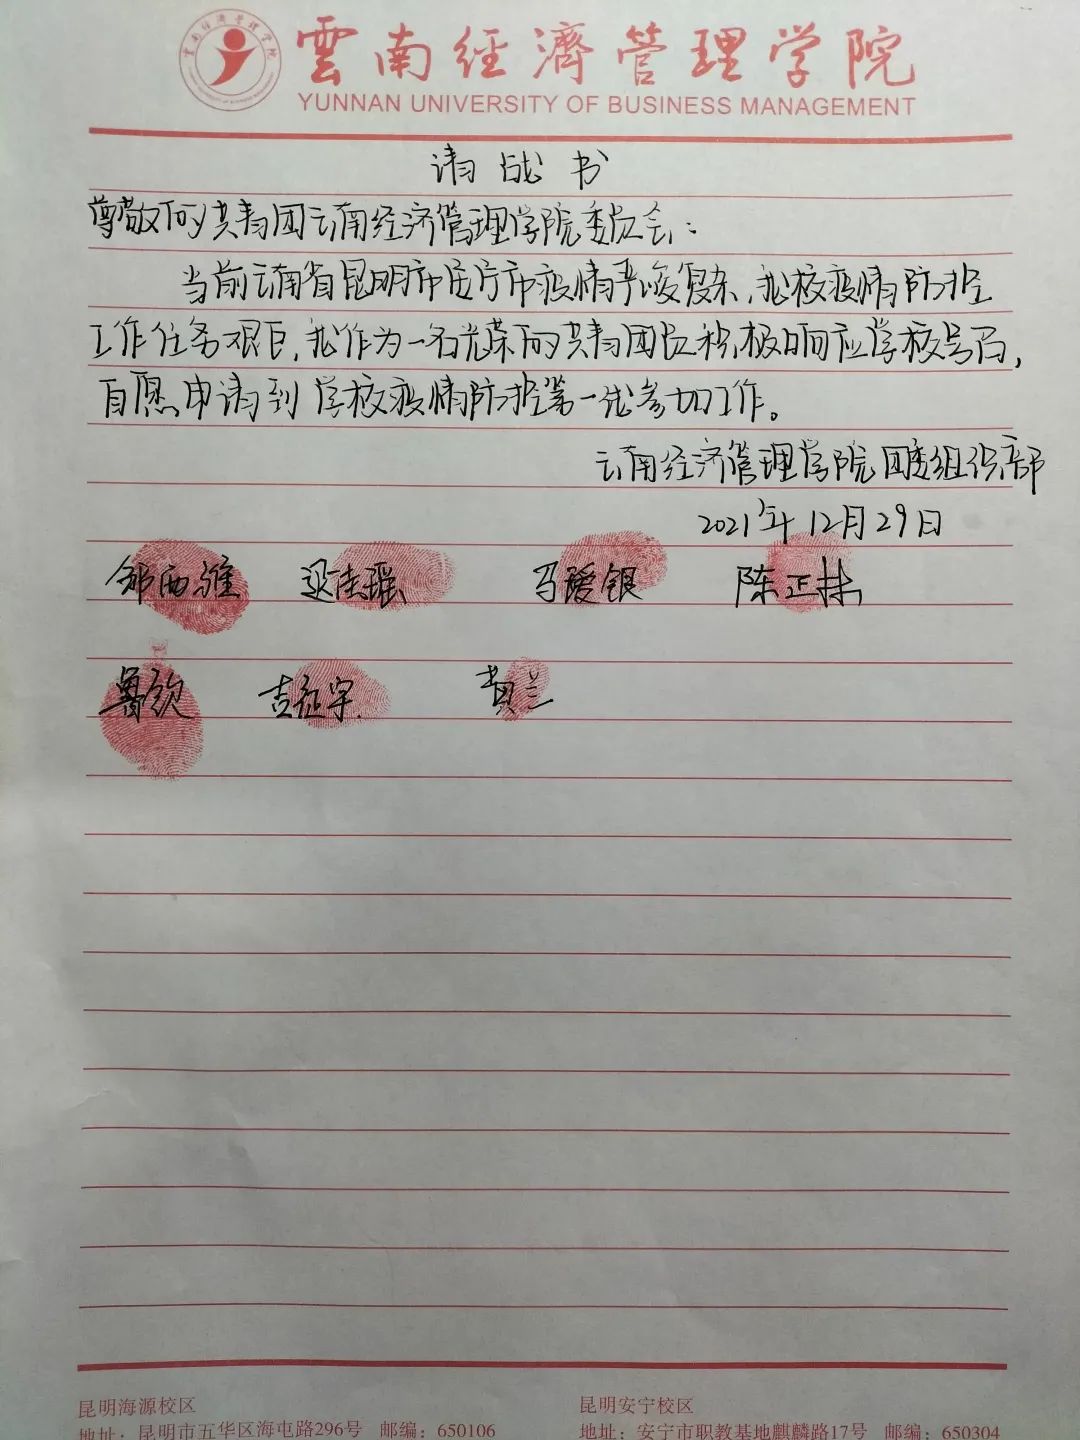 雲南經濟管理学院
YUNNAN UNIVERSITY OF BUSINESS MANAGEMENT
请战书
尊敬的共青团云南经济管理学院委员会：
当前云南省昆明市安宁市疫情严峻复杂，我校疫情防控
工作任务艰巨，我作为一名光荣的共青团员积极响应学校号召，
自愿申请到学校疫情防控第一线参加工作。
云南经济管理学院团委组织部
2021年12月29日
马瑷银 陈正林
鲁欣 黄兰
昆明海源校区 昆明安宁校区
地址：昆明市五华区海屯路296号 邮编：650106 地址：安宁市职教基地麒麟路17号 邮编：650304